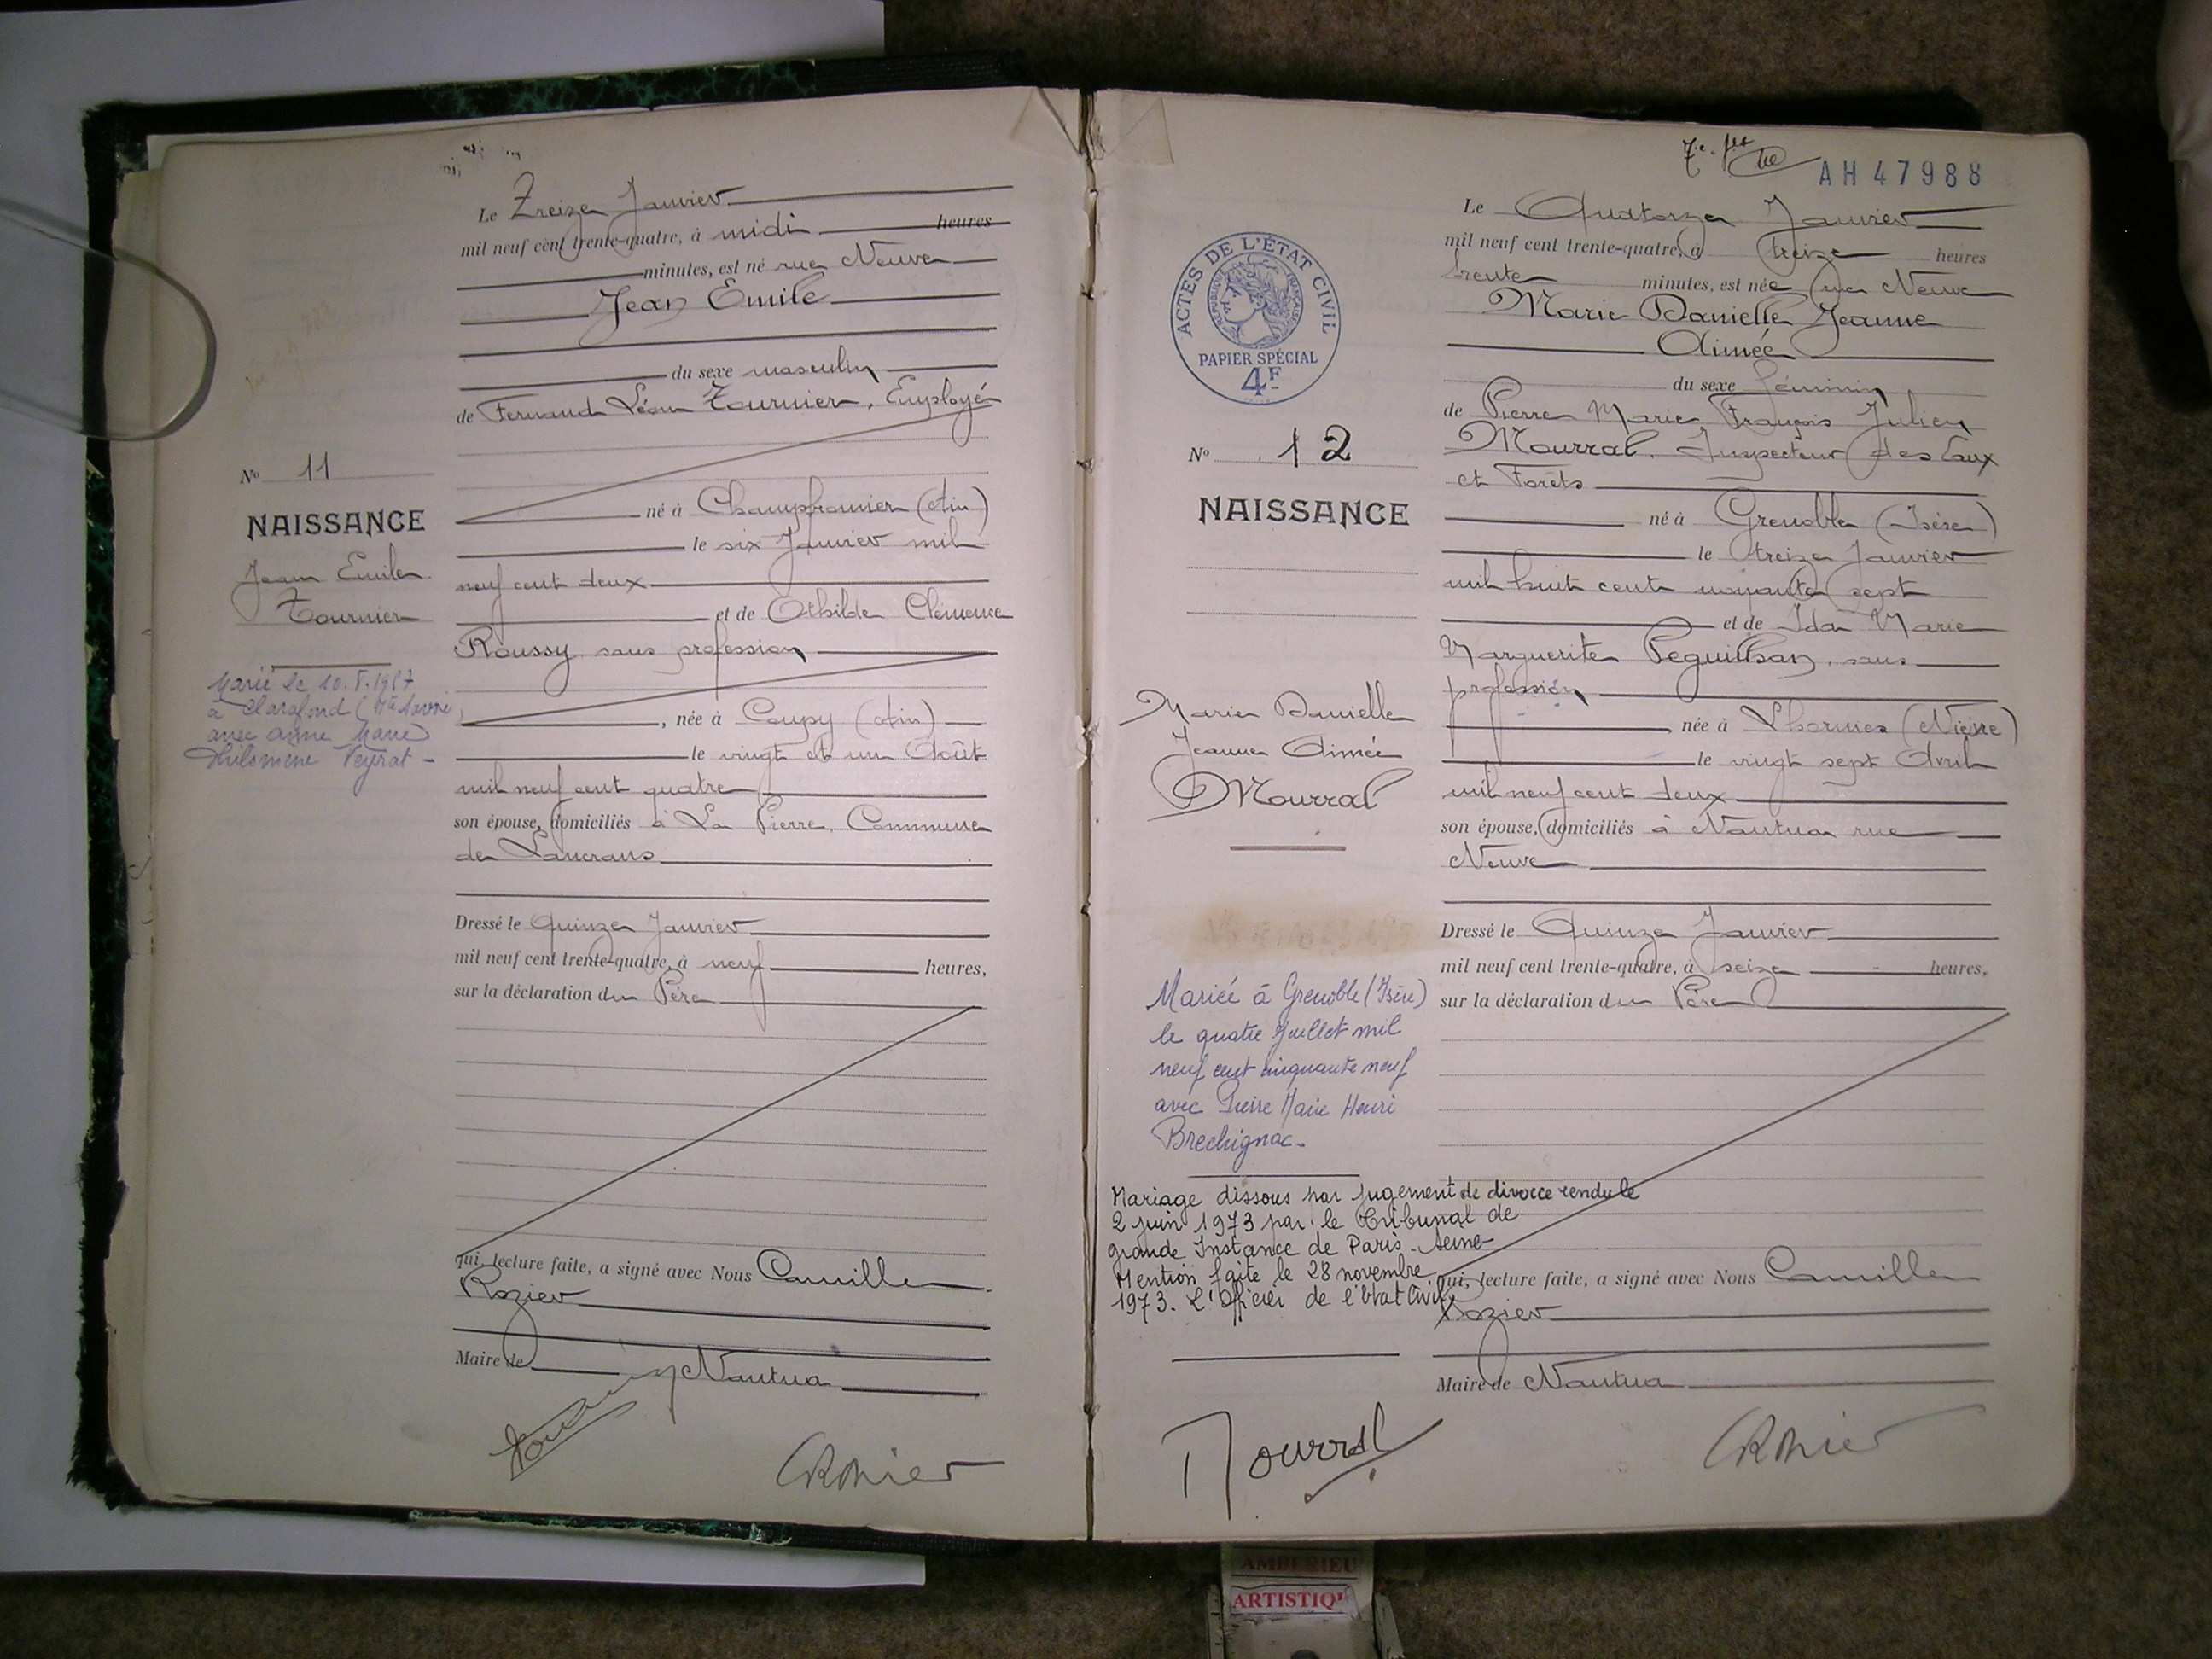 Le Treize Janvier
mil neuf cent trente-quatre, à midi heures
minutes, est né rue Neuve
Jean Emile
du sexe masculin
de Fernand Léon Tournier, Employé
né à Champfromier (Ain)
le six Janvier mil
neuf cent deux
et de Othilde Clémence
Roussy sans profession
, née à Coupy (Ain)
le vingt et un Août
mil neuf cent quatre
son épouse, domiciliés à La Pierre, Commune
de Lancrans
Dressé le quinze Janvier
mil neuf cent trente-quatre, à neuf heures,
sur la déclaration du Père
qui, lecture faite, a signé avec Nous Camille
Rozier
Maire de Nantua
Tournier
CRozier
No 11
NAISSANCE
Jean Emile
Tournier
Marié le 10.5.1957
à Clarafond (Hte Savoie)
avec Anne Marie
Philomène Veyrat -
AH47988
Le Quatorze Janvier
mil neuf cent trente-quatre, à treize heures
trente minutes, est née rue Neuve
Marie Danielle Jeanne
Aimée
du sexe féminin
de Pierre Marie François Julien
Mourral, Inspecteur des Eaux
et Forêts
né à Grenoble (Isère)
le treize Janvier
mil huit cent nonante sept
et de Ida Marie
Marguerite Peguilhan, sans
profession
née à Lhormes (Nièvre)
le vingt sept Avril
mil neuf cent deux
son épouse, domiciliés à Nantua rue
Neuve
Dressé le Quinze Janvier
mil neuf cent trente-quatre, à seize heures,
sur la déclaration du Père
qui, lecture faite, a signé avec Nous Camille
Rozier
Maire de Nantua
Mourral
CRozier
ACTES DE L'ÉTAT CIVIL
RÉPUBLIQUE FRANÇAISE
PAPIER SPÉCIAL
4F
No 12
NAISSANCE
Marie Danielle
Jeanne Aimée
Mourral
Mariée à Grenoble (Isère)
le quatre Juillet mil
neuf cent cinquante neuf
avec Pierre Marie Henri
Brechignac-
Mariage dissous par jugement de divorce rendu le
2 juin 1973 par le Tribunal de
grande Instance de Paris - Seine-
Mention faite le 28 novembre
1973. L'Officier de l'Etat Civil,
AMBERIEU
ARTISTIQU